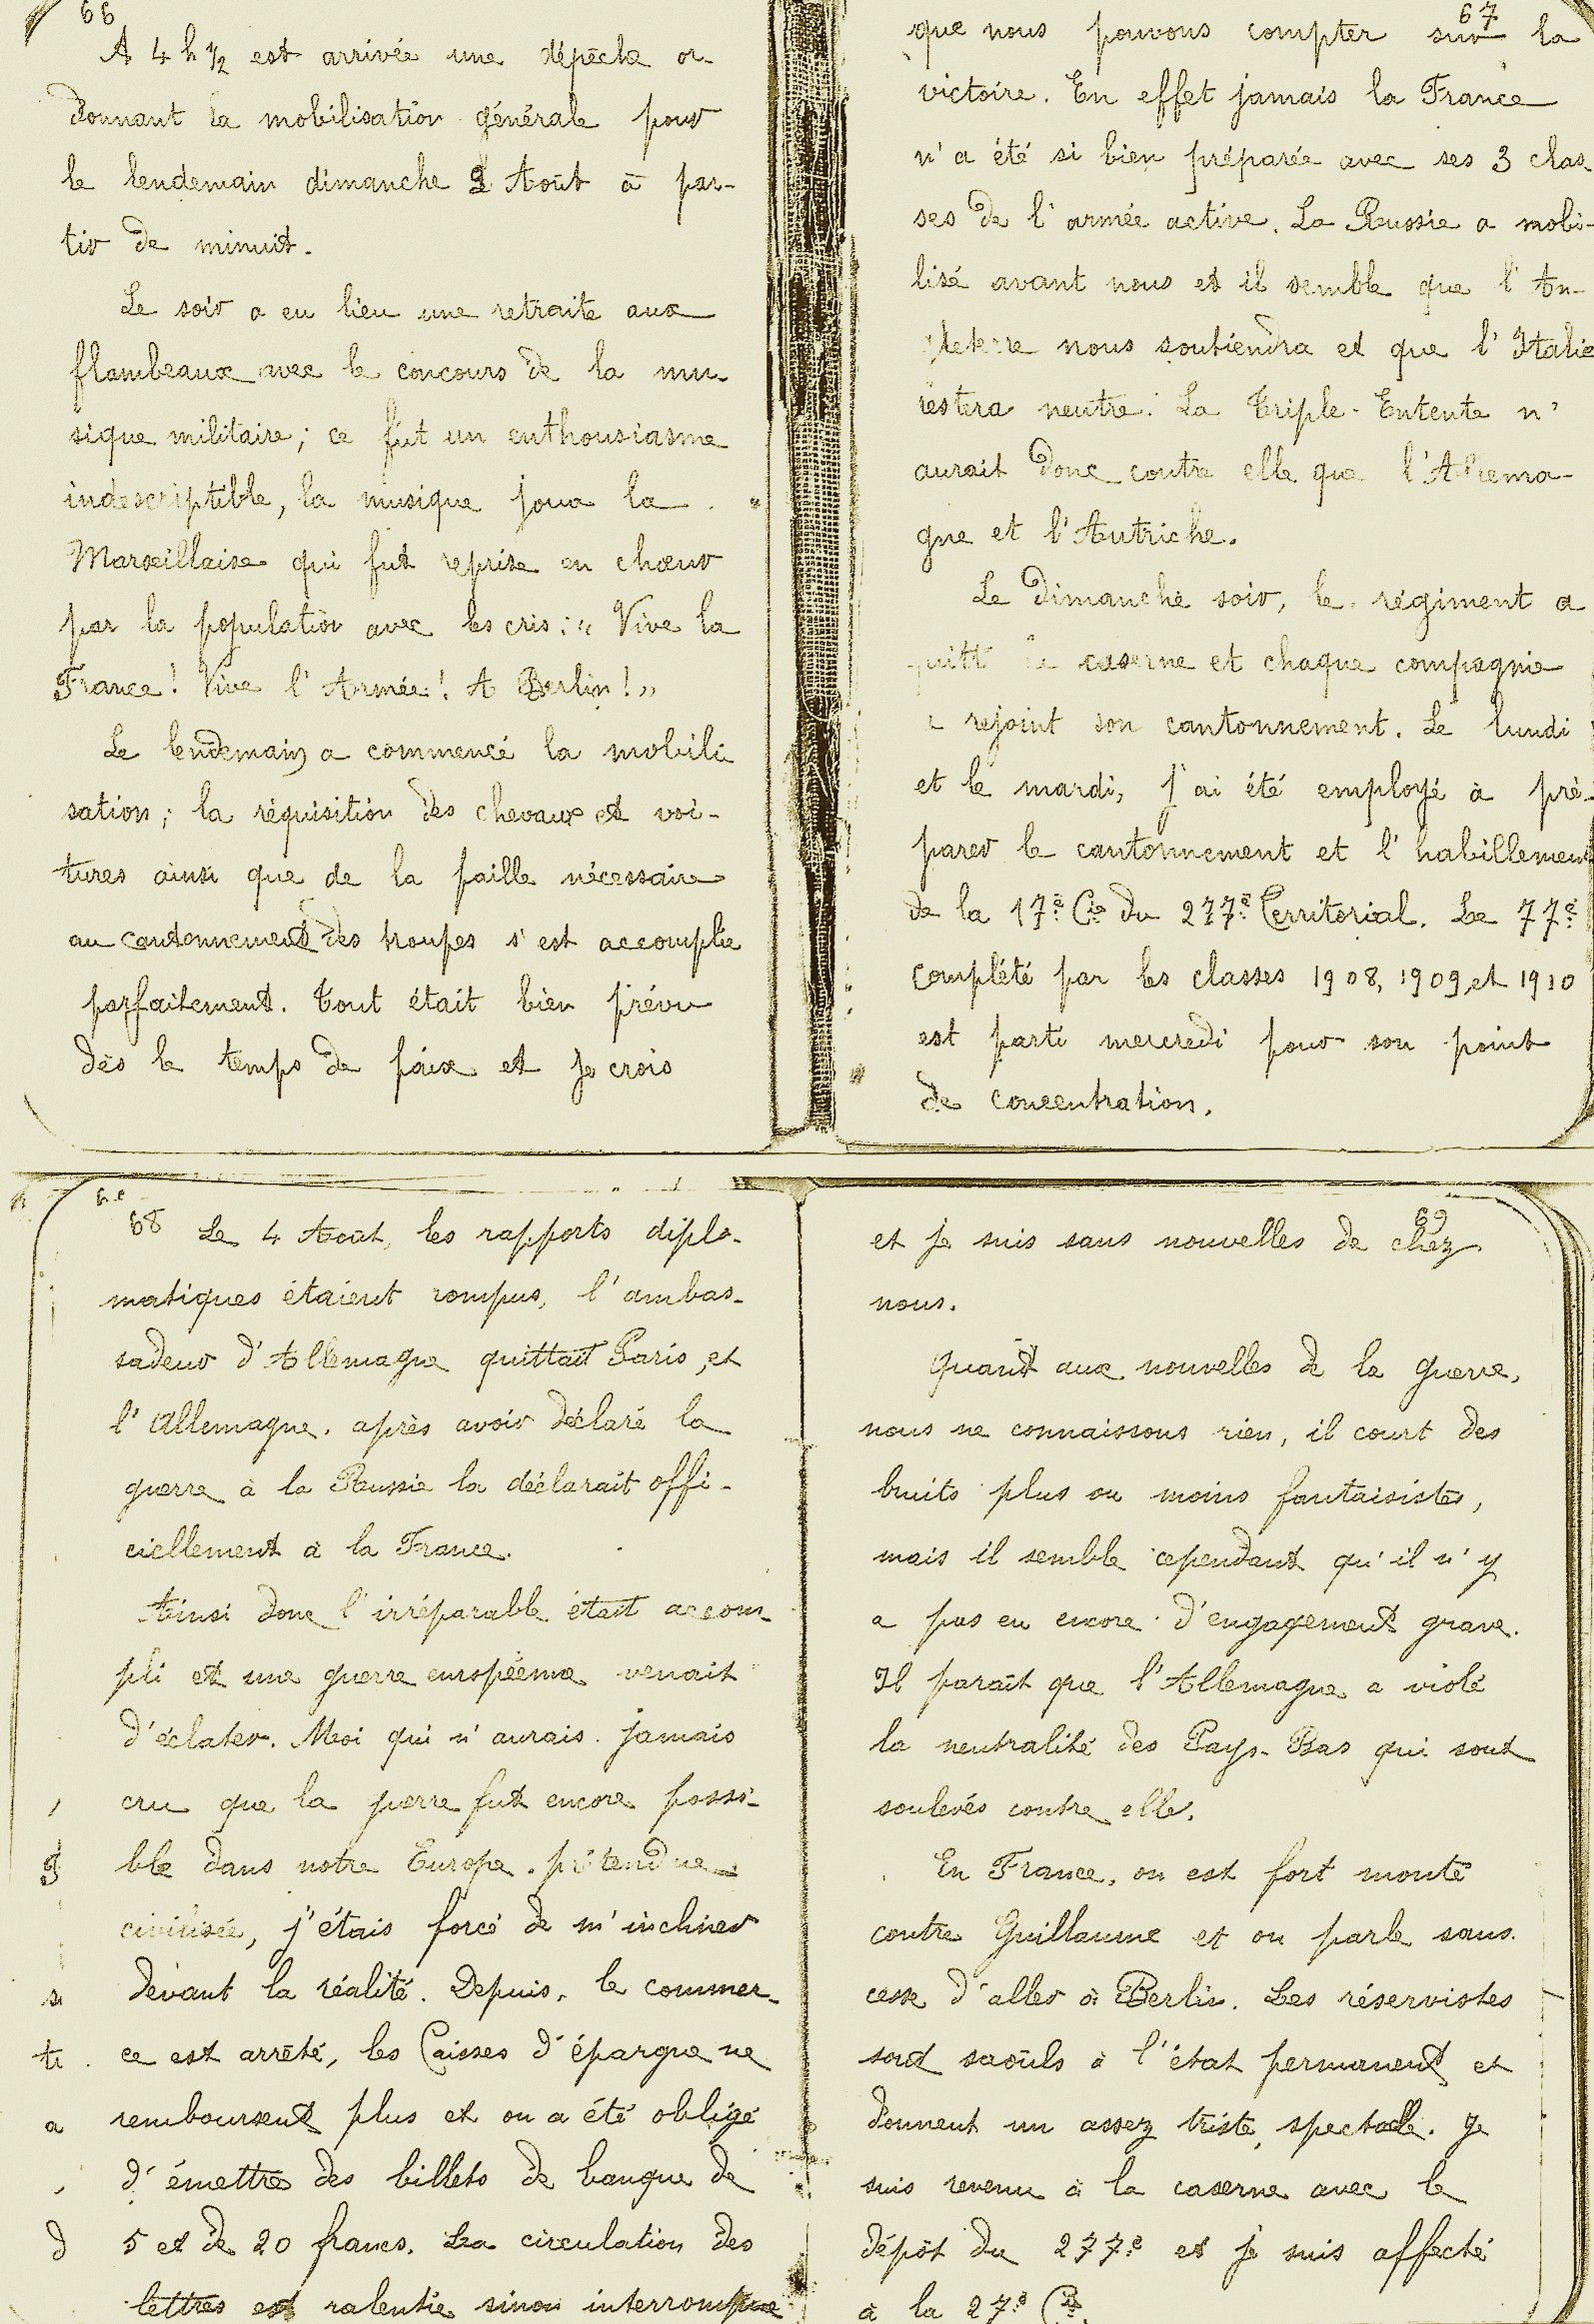 66
A 4 h ½ est arrivée une dépêche or-
donnant la mobilisation générale pour
le lendemain dimanche 2 Août à par-
tir de minuit.
Le soir a eu lieu une retraite aux
flambeaux avec le concours de la mu-
sique militaire ; ce fut un enthousiasme
indescriptible, la musique joua la
Marseillaise qui fut reprise en chœur
par la population avec les cris : " Vive la
France ! Vive l'Armée ! A Berlin ! "
Le lendemain a commencé la mobili
sation ; la réquisition des chevaux et voi-
tures ainsi que de la paille nécessaire
au cantonnement des troupes s'est accomplie
parfaitement. Tout était bien prévu
dès le temps de paix et je crois
67
que nous pouvons compter sur la
victoire. En effet jamais la France
n'a été si bien préparée avec ses 3 clas-
ses de l'armée active. La Russie a mobi-
lisé avant nous et il semble que l'An-
gleterre nous soutiendra et que l'Italie
restera neutre. La Triple-Entente n'
aurait donc contre elle que l'Allema-
gne et l'Autriche.
Le dimanche soir, le régiment a
quitté la caserne et chaque compagnie
a rejoint son cantonnement. Le lundi
et le mardi, j'ai été employé à pré-
parer le cantonnement et l'habillement
de la 17e Cie du 277e Territorial. Le 77e
complété par les classes 1908, 1909 et 1910
est parti mercredi pour son point
de concentration.
68
Le 4 Août, les rapports diplo-
matiques étaient rompus, l'ambas-
sadeur d'Allemagne quittait Paris, et
l'Allemagne, après avoir déclaré la
guerre à la Russie la déclarait offi-
ciellement à la France.
Ainsi donc l'irréparable était accom-
pli et une guerre européenne venait
d'éclater. Moi qui n'aurais jamais
cru que la guerre fut encore possi-
ble dans notre Europe prétendue
civilisée, j'étais forcé de m'incliner
devant la réalité. Depuis, le commer-
ce est arrêté, les Caisses d'épargne ne
remboursent plus et on a été obligé
d'émettre des billets de banque de
5 et de 20 francs. La circulation des
lettres est ralentie sinon interrompue
69
et je suis sans nouvelles de chez
nous.
Quant aux nouvelles de la guerre,
nous ne connaissons rien, il court des
bruits plus ou moins fantaisistes,
mais il semble cependant qu'il n'y
a pas eu encore d'engagement grave.
Il paraît que l'Allemagne a violé
la neutralité des Pays-Bas qui sont
soulevés contre elle.
En France, on est fort monté
contre Guillaume et on parle sans
cesse d'aller à Berlin. Les réservistes
sont saoûls à l'état permanent et
donnent un assez triste spectacle. Je
suis revenu à la caserne avec le
dépôt du 277e et je suis affecté
à la 27e Cie.